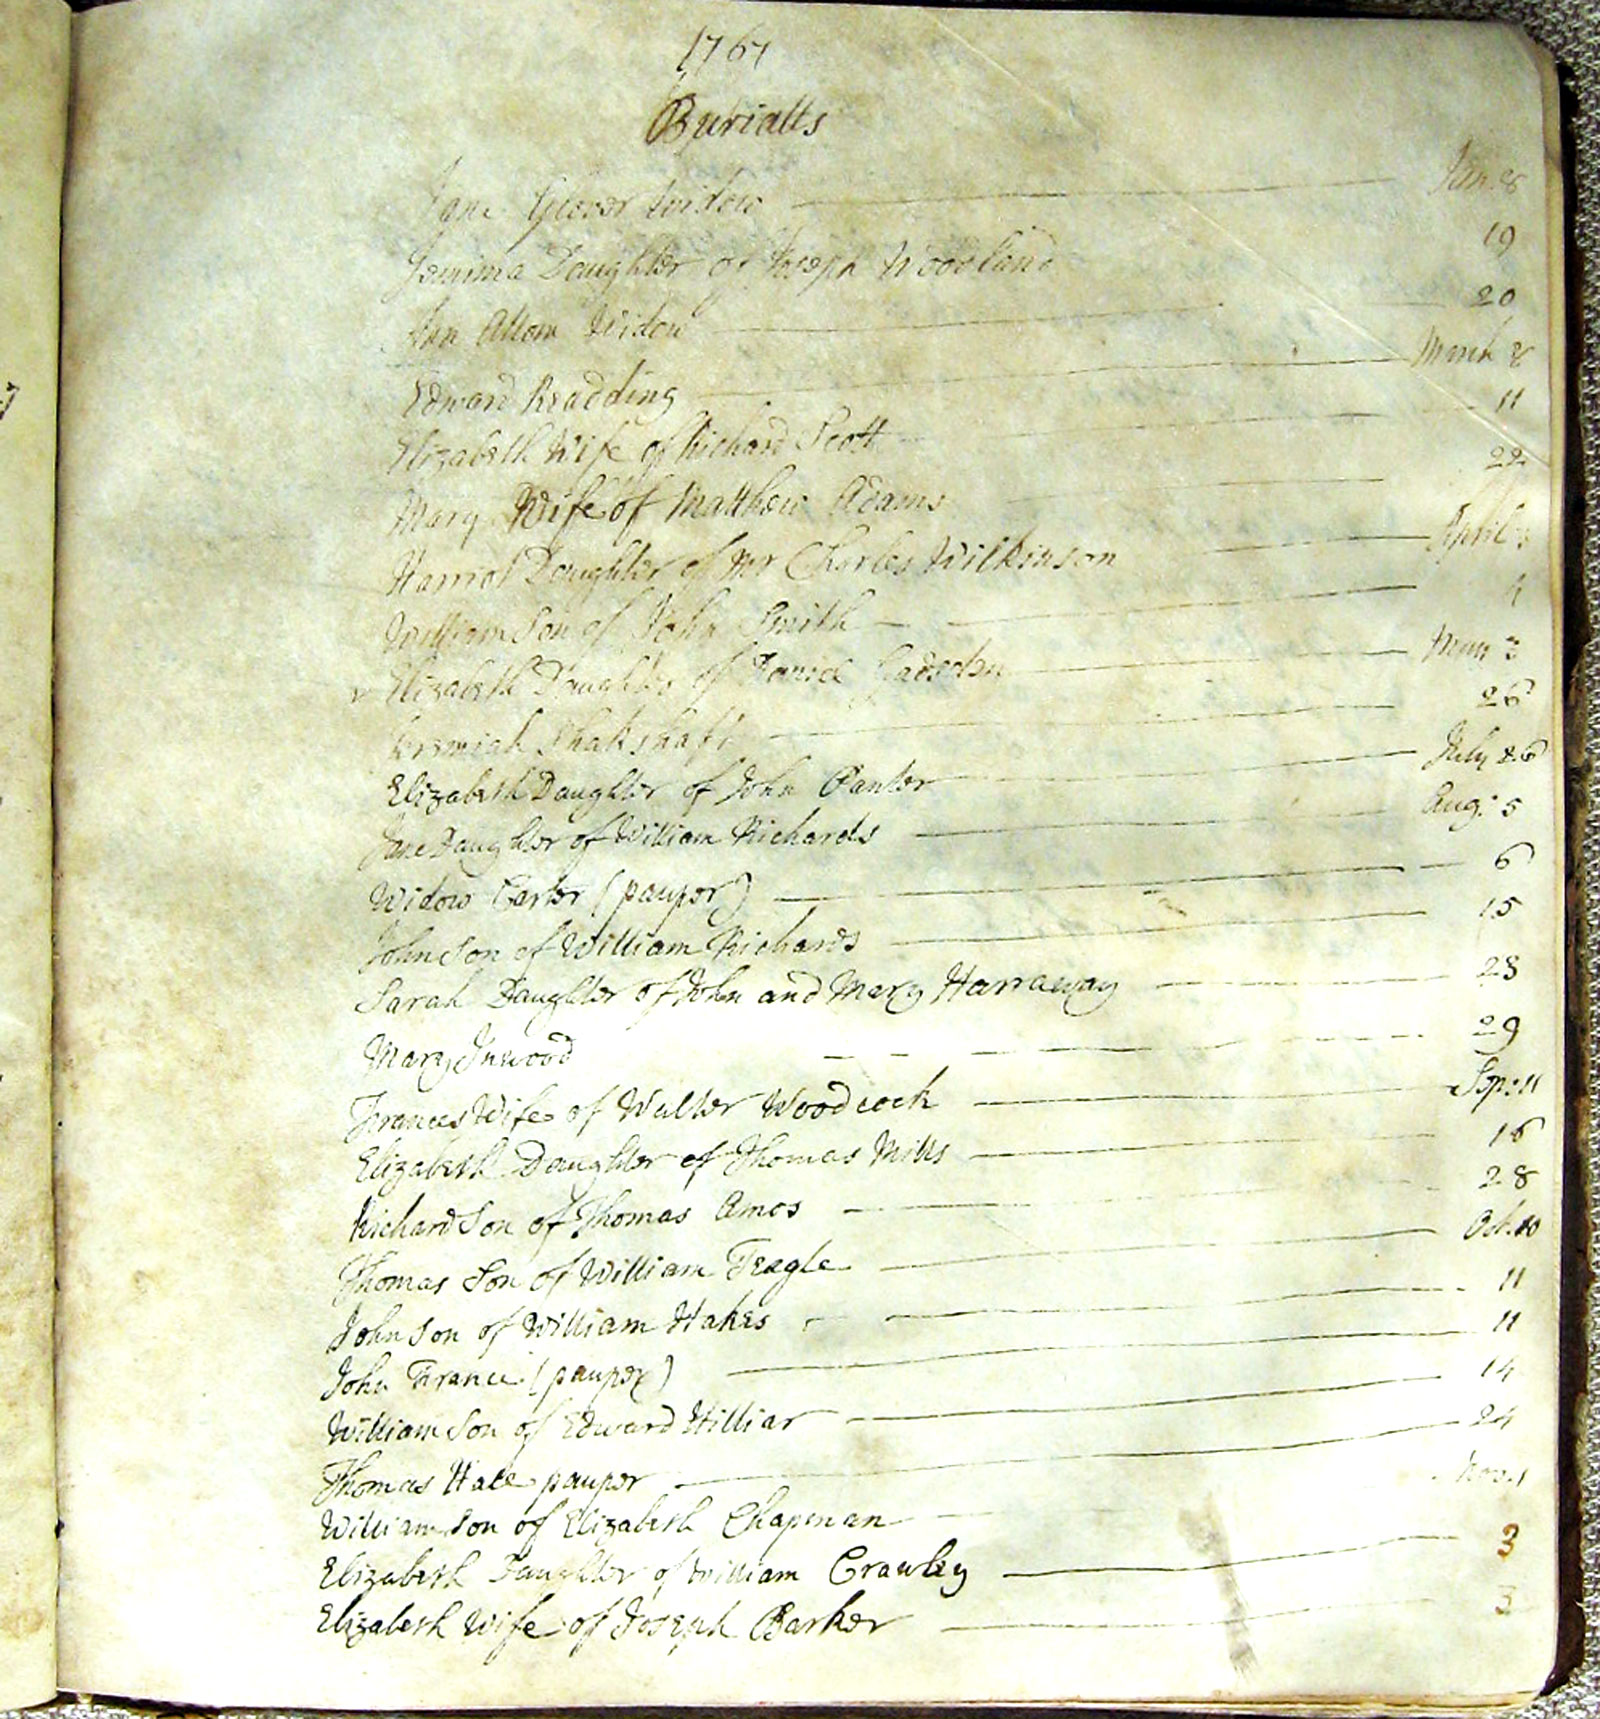 1767
Burialls
Jane Glover Widow Jan. 8
Jemima Daughter of Joseph Woodland 19
Ann Allom Widow 20
Edward Readding March 8
Elizabeth Wife of Richard Scott 11
Mary Wife of Matthew Adams 22
Harriot Daughter of Mr Charles Wilkinson April 3
William Son of John Smith 4
Elizabeth Daughter of Daniel Gadsden May 3
Jeremiah Shakshaft 26
Elizabeth Daughter of John Panter July 26
Jane Daughter of William Richards Aug: 5
Widow Carter (pauper) 6
John Son of William Richards 15
Sarah Daughter of John and Mary Harraway 28
Mary Inwood 29
Frances Wife of Walter Woodcock Sep: 11
Elizabeth Daughter of Thomas Mills 16
Richard Son of Thomas Amos 28
Thomas Son of William Teagle Oct. 10
John Son of William Hakes 11
John France (pauper) 11
William Son of Edward Hilliar 14
Thomas Hale pauper 24
William Son of Elizabeth Chapman Nov. 1
Elizabeth Daughter of William Crawley 3
Elizabeth Wife of Joseph Barker 3